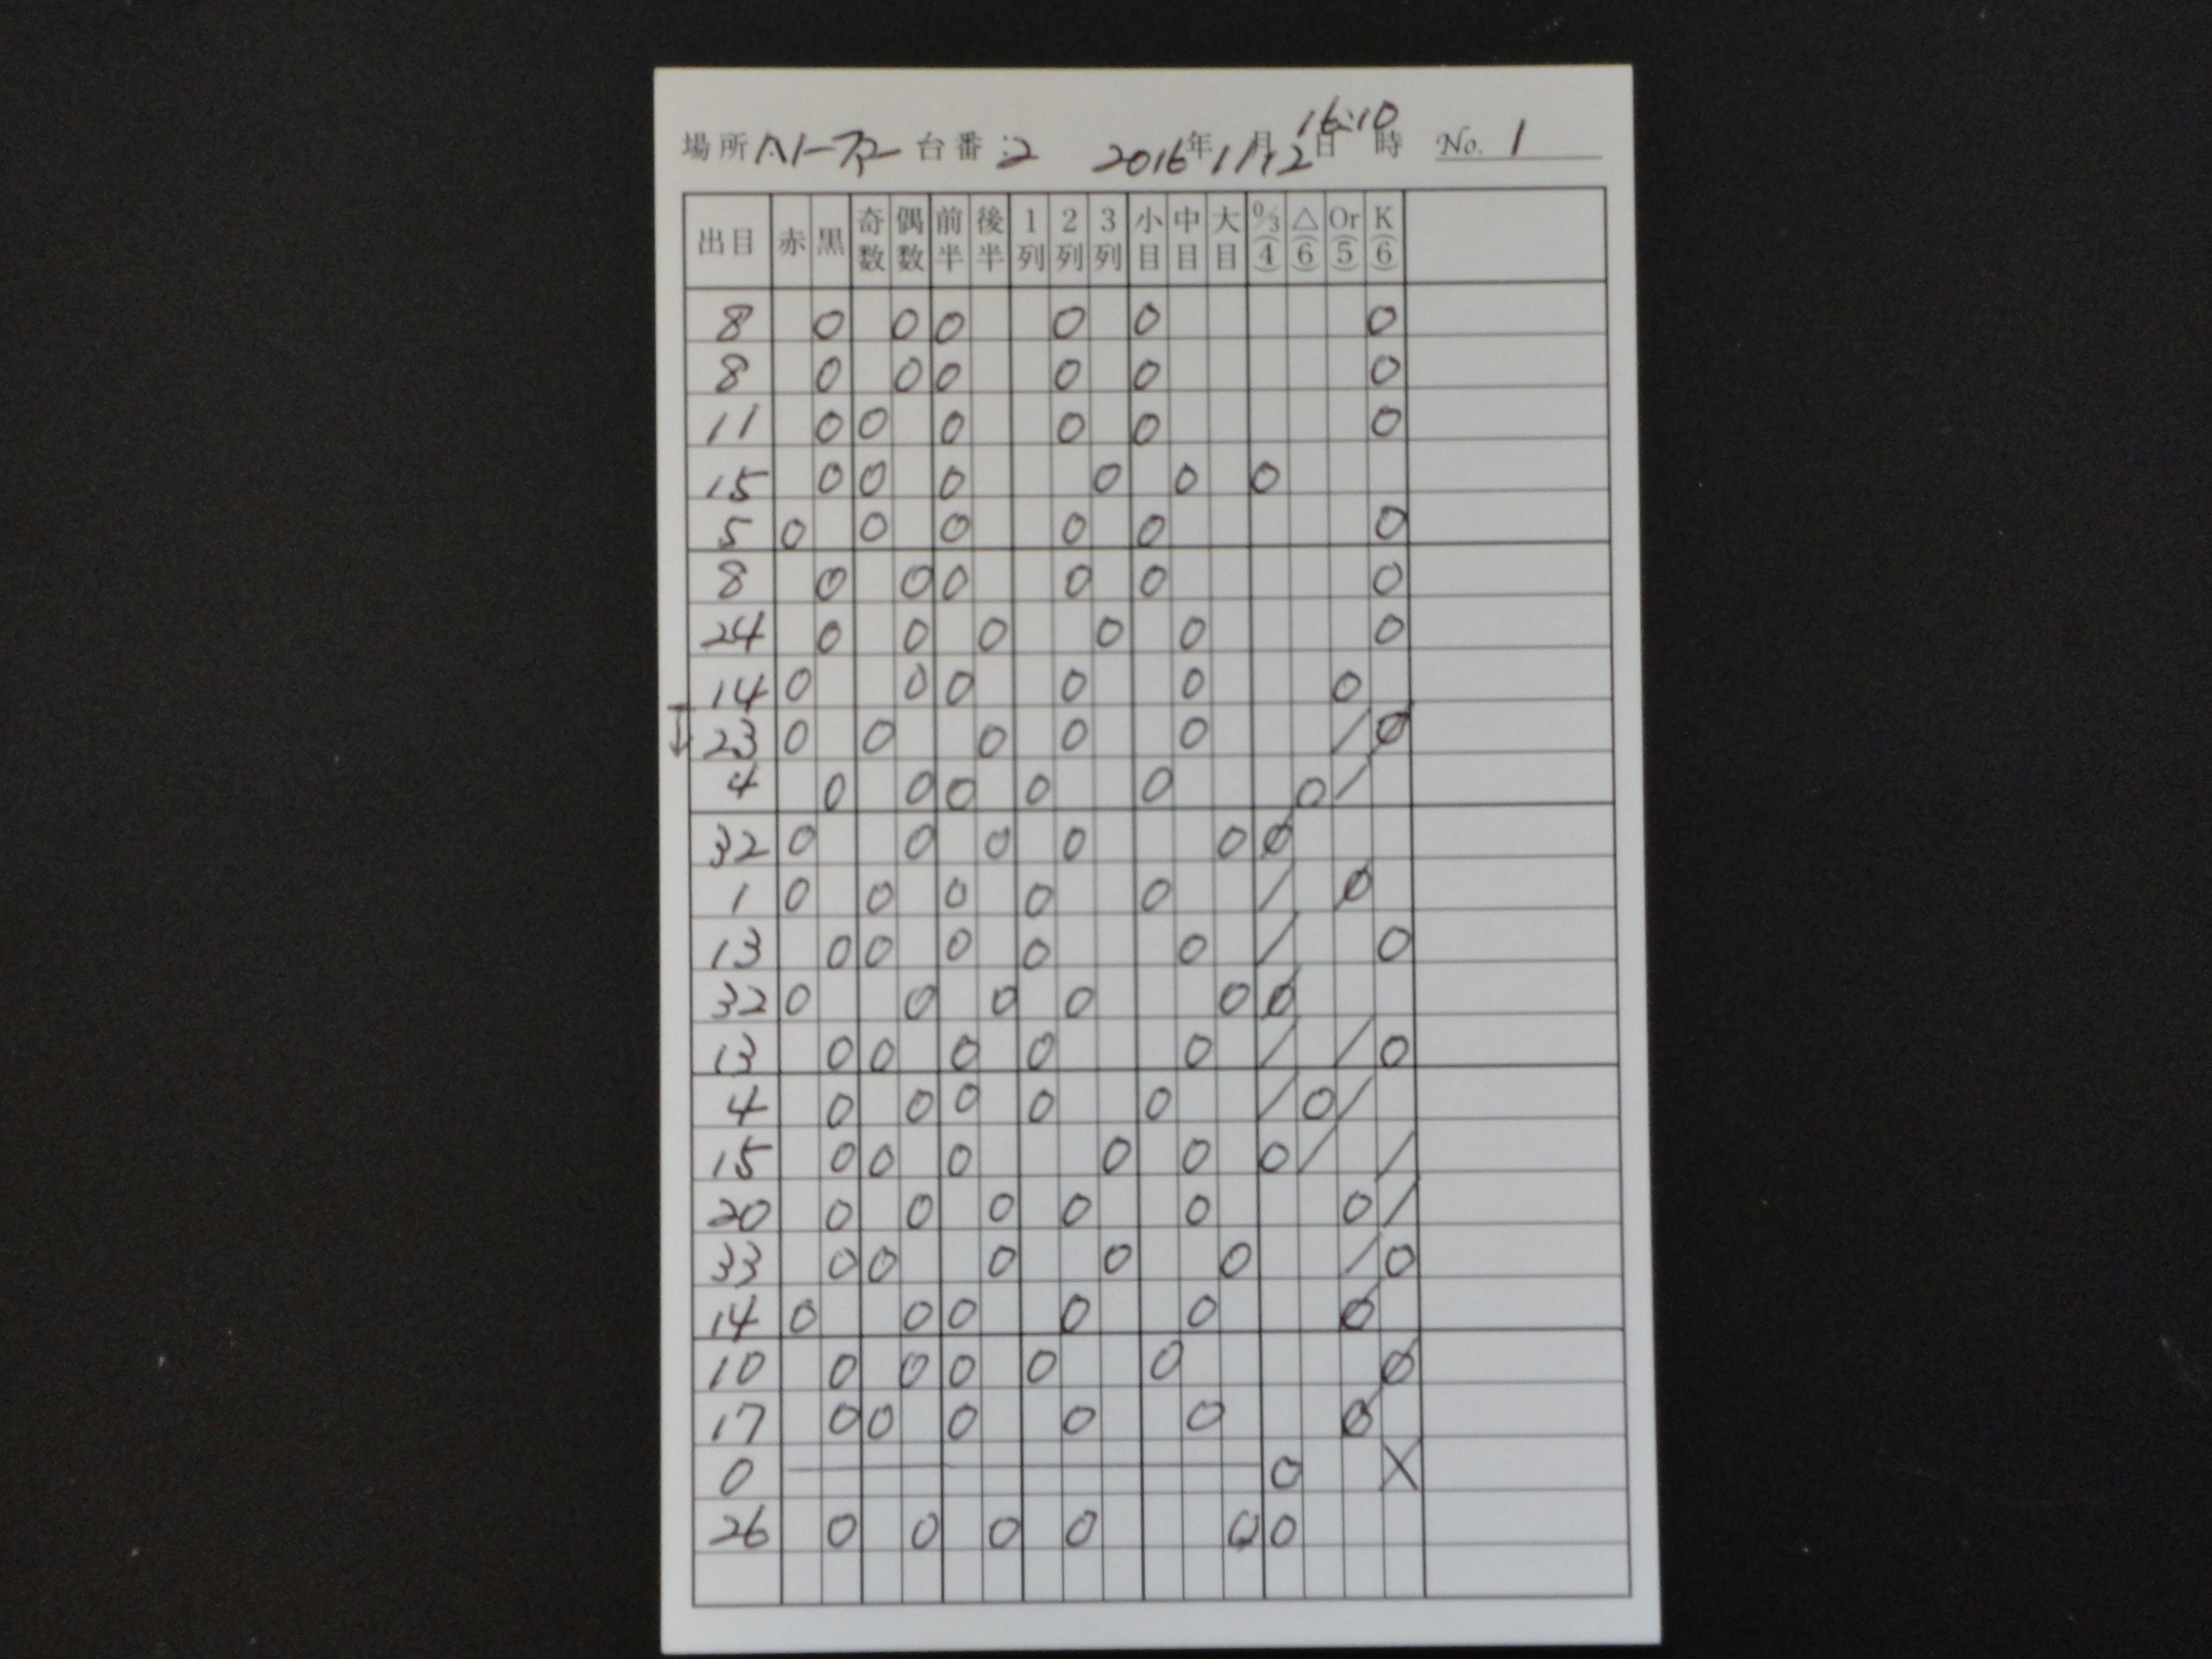 場所: ハーフ2 台番:2 2016年11月12日16:10時 No. 1
出目 赤 黒 奇数 偶数 前半 後半 1列 2列 3列 小目 中目 大目 0/3(4) △(6) Or(5) K(6)
8 0 0 0 0 0 0
8 0 0 0 0 0 0
11 0 0 0 0 0 0
15 0 0 0 0 0 0
5 0 0 0 0 0 0
8 0 0 0 0 0 0
24 0 0 0 0 0 0
14 0 0 0 0 0 0
23 0 0 0 0 0 / Ø
4 0 0 0 0 0 0 /
32 0 0 0 0 0 Ø
1 0 0 0 0 0 / Ø
13 0 0 0 0 0 / 0
32 0 0 0 0 0 Ø
13 0 0 0 0 0 / / 0
4 0 0 0 0 0 / 0 /
15 0 0 0 0 0 0 / /
20 0 0 0 0 0 0 /
33 0 0 0 0 0 / 0
14 0 0 0 0 0 Ø
10 0 0 0 0 0 Ø
17 0 0 0 0 0 Ø
0 — 0 X
26 0 0 0 0 0 0